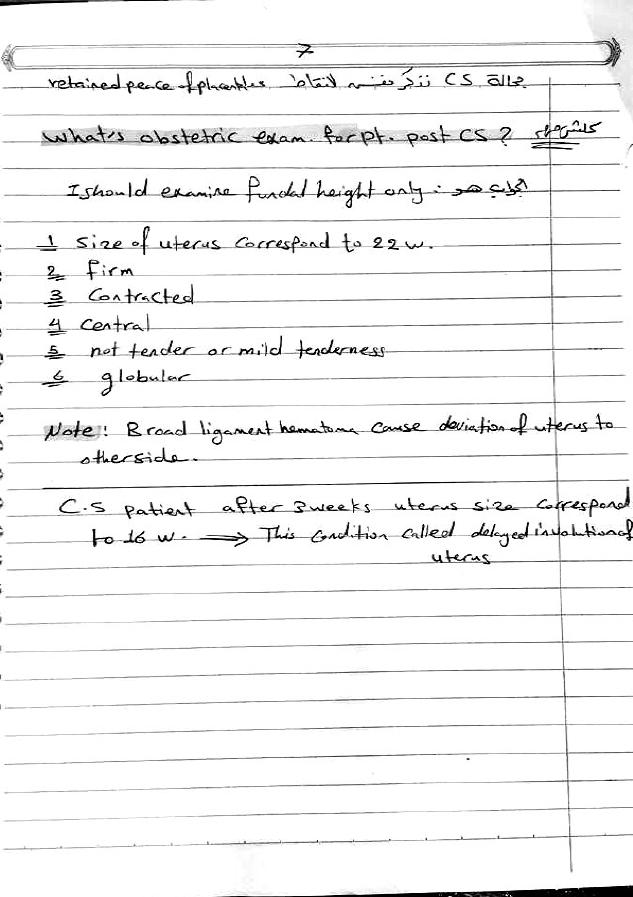 7
retained peace of plcantles لانقاط نذكر فيه CS حالة
What's obstetric exam. for pt. post CS ? كلش مهم
I should examine fundal height only : الجواب هو
1 Size of uterus correspond to 22 w.
2 firm
3 Contracted
4 central
5 not tender or mild tenderness
6 globular
Note : Broad ligament hematoma cause deviation of uterus to
otherside.
C.S patient after 3 weeks uterus size correspond
to 16 w. → This condition called delayed involution of
uterus